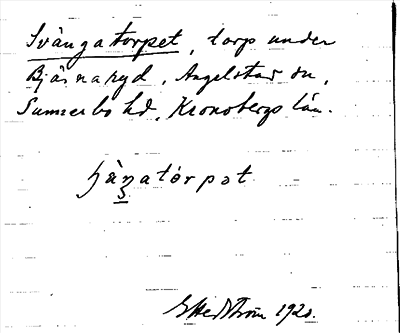 Svängatorpet, torp under
Bjärnaryd, Angelstad sn,
Sunnerbo hd, Kronobergs län.
häŋatórpat
1920.